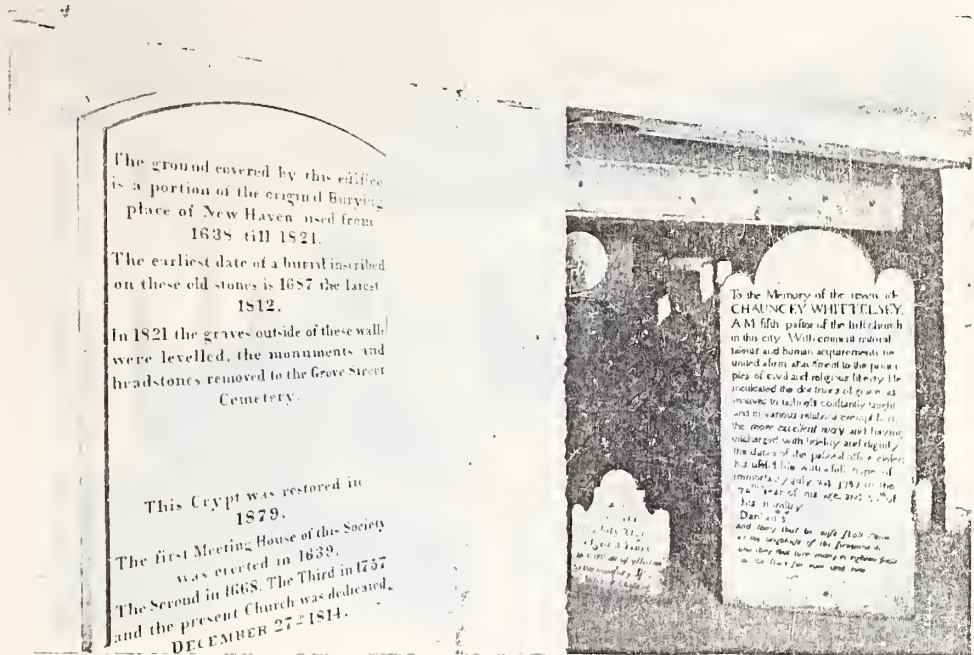 The ground covered by this edifice
is a portion of the original Burying
place of New Haven used from
1638 till 1821.
The earliest date of a burial inscribed
on these old stones is 1687 the latest
1812.
In 1821 the graves outside of these walls
were levelled, the monuments and
headstones removed to the Grove Street
Cemetery.
This Crypt was restored in
1879.
The first Meeting House of this Society
was erected in 1639.
The Second in 1668. The Third in 1757
and the present Church was dedicated,
DECEMBER 27th 1814.
To the Memory of the
CHAUNCEY WHITTELSEY,
A M fifth pastor of the first church
in this city. With eminent natural
talents and human acquirements he
united a firm attachment to the princi
ples of civil and religious liberty. He
inculcated the doctrines of grace as
motives to constantly taught
and in various relations
the more excellent way and having
discharged with fidelity and dignity
the duties of the pastoral office
his life with a full hope of
immortality July 1787 in the
70th year of his age, and of
his ministry
Dan
and they that be wise shall
as the brightness of the firmament &
and they that turn many to righteousness
as the stars for ever and ever
July
aged Years